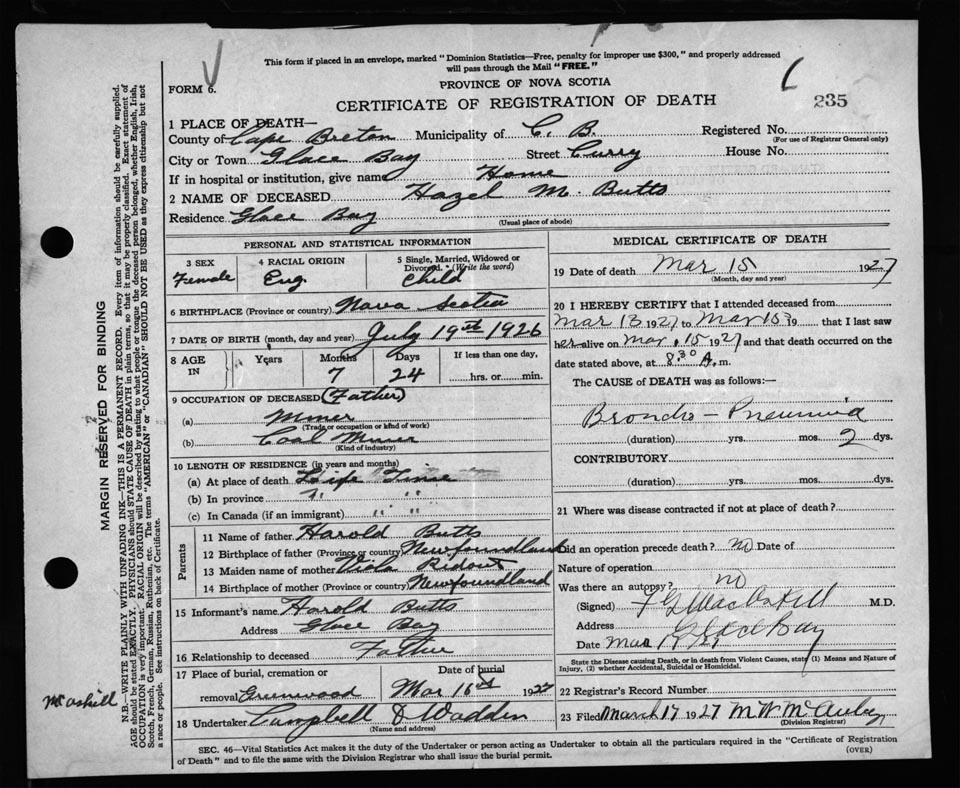 This form if placed in an envelope, marked "Dominion Statistics—Free, penalty for improper use $300," and properly addressed
will pass through the Mail "FREE."
FORM 6.
PROVINCE OF NOVA SCOTIA
CERTIFICATE OF REGISTRATION OF DEATH
235
1 PLACE OF DEATH—
County of Cape Breton Municipality of C. B. Registered No.
(For use of Registrar General only)
City or Town Glace Bay Street Curry House No.
If in hospital or institution, give name Home
2 NAME OF DECEASED Hazel M. Butts
Residence Glace Bay
(Usual place of abode)
PERSONAL AND STATISTICAL INFORMATION
3 SEX
Female
4 RACIAL ORIGIN
Eng.
5 Single, Married, Widowed or
Divorced. (Write the word)
Child
6 BIRTHPLACE (Province or country) Nova Scotia
7 DATE OF BIRTH (month, day and year) July 19th 1926
8 AGE
IN
Years
Months
7
Days
24
If less than one day,
hrs. or min.
9 OCCUPATION OF DECEASED (Father)
(a) Miner
(Trade or occupation or kind of work)
(b) Coal Miner
(Kind of industry)
10 LENGTH OF RESIDENCE (in years and months)
(a) At place of death Life Time
(b) In province " "
(c) In Canada (if an immigrant) " "
Parents
11 Name of father Harold Butts
12 Birthplace of father (Province or country) Newfoundland
13 Maiden name of mother Viola Ridout
14 Birthplace of mother (Province or country) Newfoundland
15 Informant's name Harold Butts
Address Glace Bay
16 Relationship to deceased Father
17 Place of burial, cremation or
removal Greenwood
Date of burial
Mar 16th 1927
18 Undertaker Campbell & Wadden
(Name and address)
MEDICAL CERTIFICATE OF DEATH
19 Date of death Mar 15 1927
(Month, day and year)
20 I HEREBY CERTIFY that I attended deceased from
Mar 13 1927 to Mar 15 19 that I last saw
her alive on Mar. 15 1927 and that death occurred on the
date stated above, at 8.30 A. m.
The CAUSE of DEATH was as follows:
Broncho-Pneumonia
(duration) yrs. mos. 2 dys.
CONTRIBUTORY
(duration) yrs. mos. dys.
21 Where was disease contracted if not at place of death?
Did an operation precede death? no Date of
Nature of operation
Was there an autopsy? no
(Signed) MacAskill M.D.
Address Glace Bay
Date Mar
State the Disease causing Death, or in death from Violent Causes, state (1) Means and Nature of
Injury, (2) whether Accidental, Suicidal or Homicidal.
22 Registrar's Record Number
23 Filed March 17 1927 M W McAuley
(Division Registrar)
SEC. 46—Vital Statistics Act makes it the duty of the Undertaker or person acting as Undertaker to obtain all the particulars required in the "Certificate of Registration
of Death" and to file the same with the Division Registrar who shall issue the burial permit.
(OVER)
MARGIN RESERVED FOR BINDING
N.B.—WRITE PLAINLY WITH UNFADING INK—THIS IS A PERMANENT RECORD. Every item of information should be carefully supplied.
AGE should be stated EXACTLY. PHYSICIANS should STATE CAUSE OF DEATH in plain terms, so that it may be properly classified. Exact statement of
OCCUPATION is very important. RACIAL ORIGIN will be described by stating to what people or tongue the deceased person belonged, whether English, Irish,
Scotch, French, German, Russian, Ruthenian, etc. The terms "AMERICAN" or "CANADIAN" SHOULD NOT BE USED as they express citizenship but not
a race or people. See instructions on back of Certificate.
McAskill